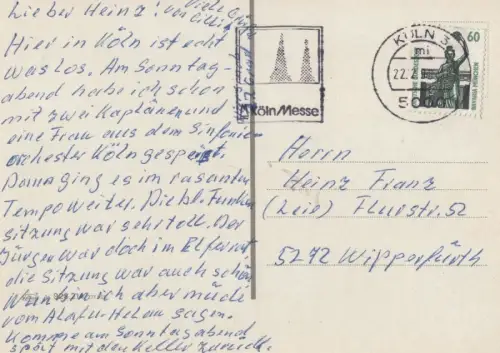 Lieber Heinz! Viele Grüße
von Cilli
Hier in Köln ist echt
was los. Am Sonntag-
abend habe ich schon
mit zwei Kaplänen und
eine Frau aus dem Sinfonie-
orchester Köln gespeist.
Dann ging es im rasanten
Tempo weiter. Die bl. Funken
sitzung war sehr toll. Der
Jürgen war doch im Elferrat
die Sitzung war auch schön
Nun bin ich aber müde
vom Alaaf u. Helau sagen.
Komme am Sonntagabend
spät mit den Keller zurück.
KölnMesse
KÖLN 3
mi
22.2.
5000
60
Herrn
Heinz Franz
(Leie) Flurstr. 52
5272 Wipperfürth